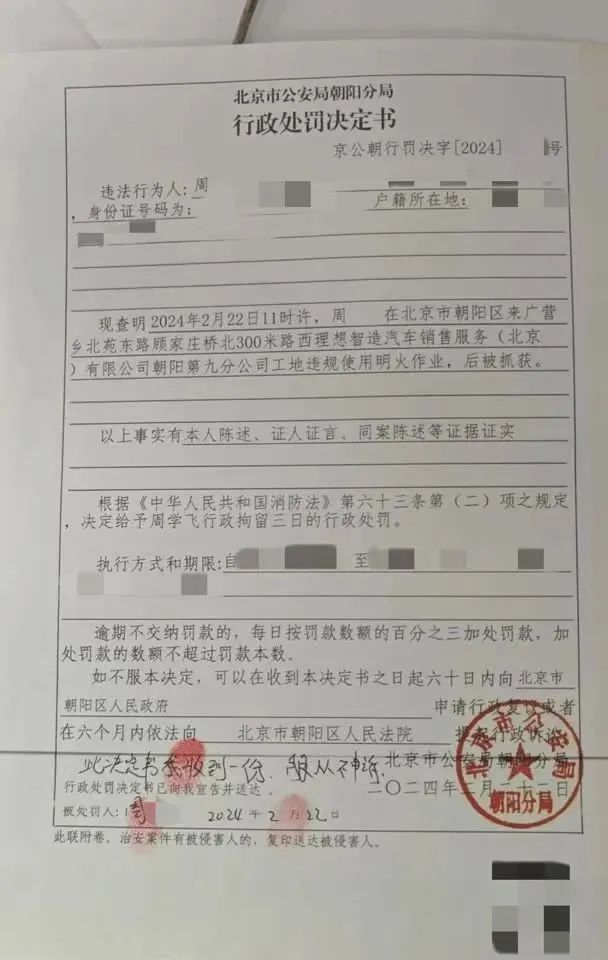 北京市公安局朝阳分局
行政处罚决定书
京公朝行罚决字[2024] 号
违法行为人:周 户籍所在地:
,身份证号码为:
现查明2024年2月22日11时许,周 在北京市朝阳区来广营
乡北苑东路顾家庄桥北300米路西理想智造汽车销售服务(北京
)有限公司朝阳第九分公司工地违规使用明火作业,后被抓获。
以上事实有本人陈述、证人证言、同案陈述等证据证实
根据《中华人民共和国消防法》第六十三条第(二)项之规定
,决定给予周学飞行政拘留三日的行政处罚。
执行方式和期限:自 至
逾期不交纳罚款的,每日按罚款数额的百分之三加处罚款,加
处罚款的数额不超过罚款本数。
如不服本决定,可以在收到本决定书之日起六十日内向北京市
朝阳区人民政府 申请行政复议或者
在六个月内依法向 北京市朝阳区人民法院 提起行政诉讼
此决定书 收到一份,服从不申诉 北京市公安局朝阳分局
行政处罚决定书已向我宣告并送达。 二〇二四年二月二十二日
被处罚人:周 2024年2月22日
此联附卷。治安案件有被侵害人的,复印送达被侵害人。
北京市公安局
朝阳分局